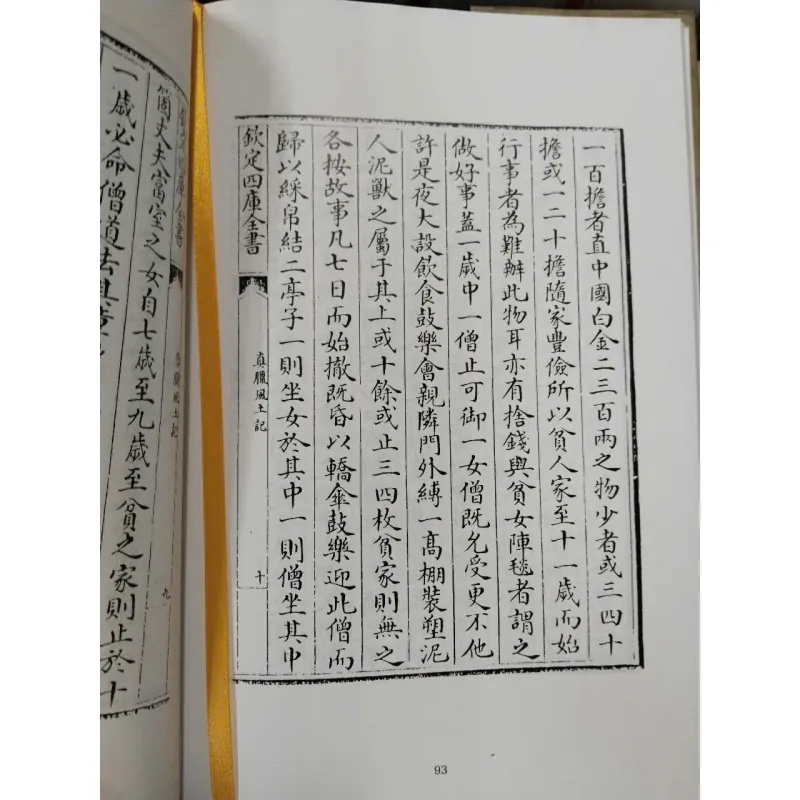 一百擔者直中國白金二三百兩之物少者或三四十
擔或一二十擔隨家豐儉所以貧人家至十一歲而始
行事者為難辦此物耳亦有捨錢與貧女陣毯者謂之
做好事蓋一歲中一僧止可御一女僧既允受更不他
許是夜大設飲食鼓樂會親隣門外縳一高棚裝塑泥
人泥獸之屬于其上或十餘或止三四枚貧家則無之
各按故事凡七日而始撤既昏以轎傘鼓樂迎此僧而
歸以綵帛結二亭子一則坐女於其中一則僧坐其中
欽定四庫全書
真臘風土記
十
九
富室之女自七歲至九歲至貧之家則止於十
一歲必命僧道去其
93